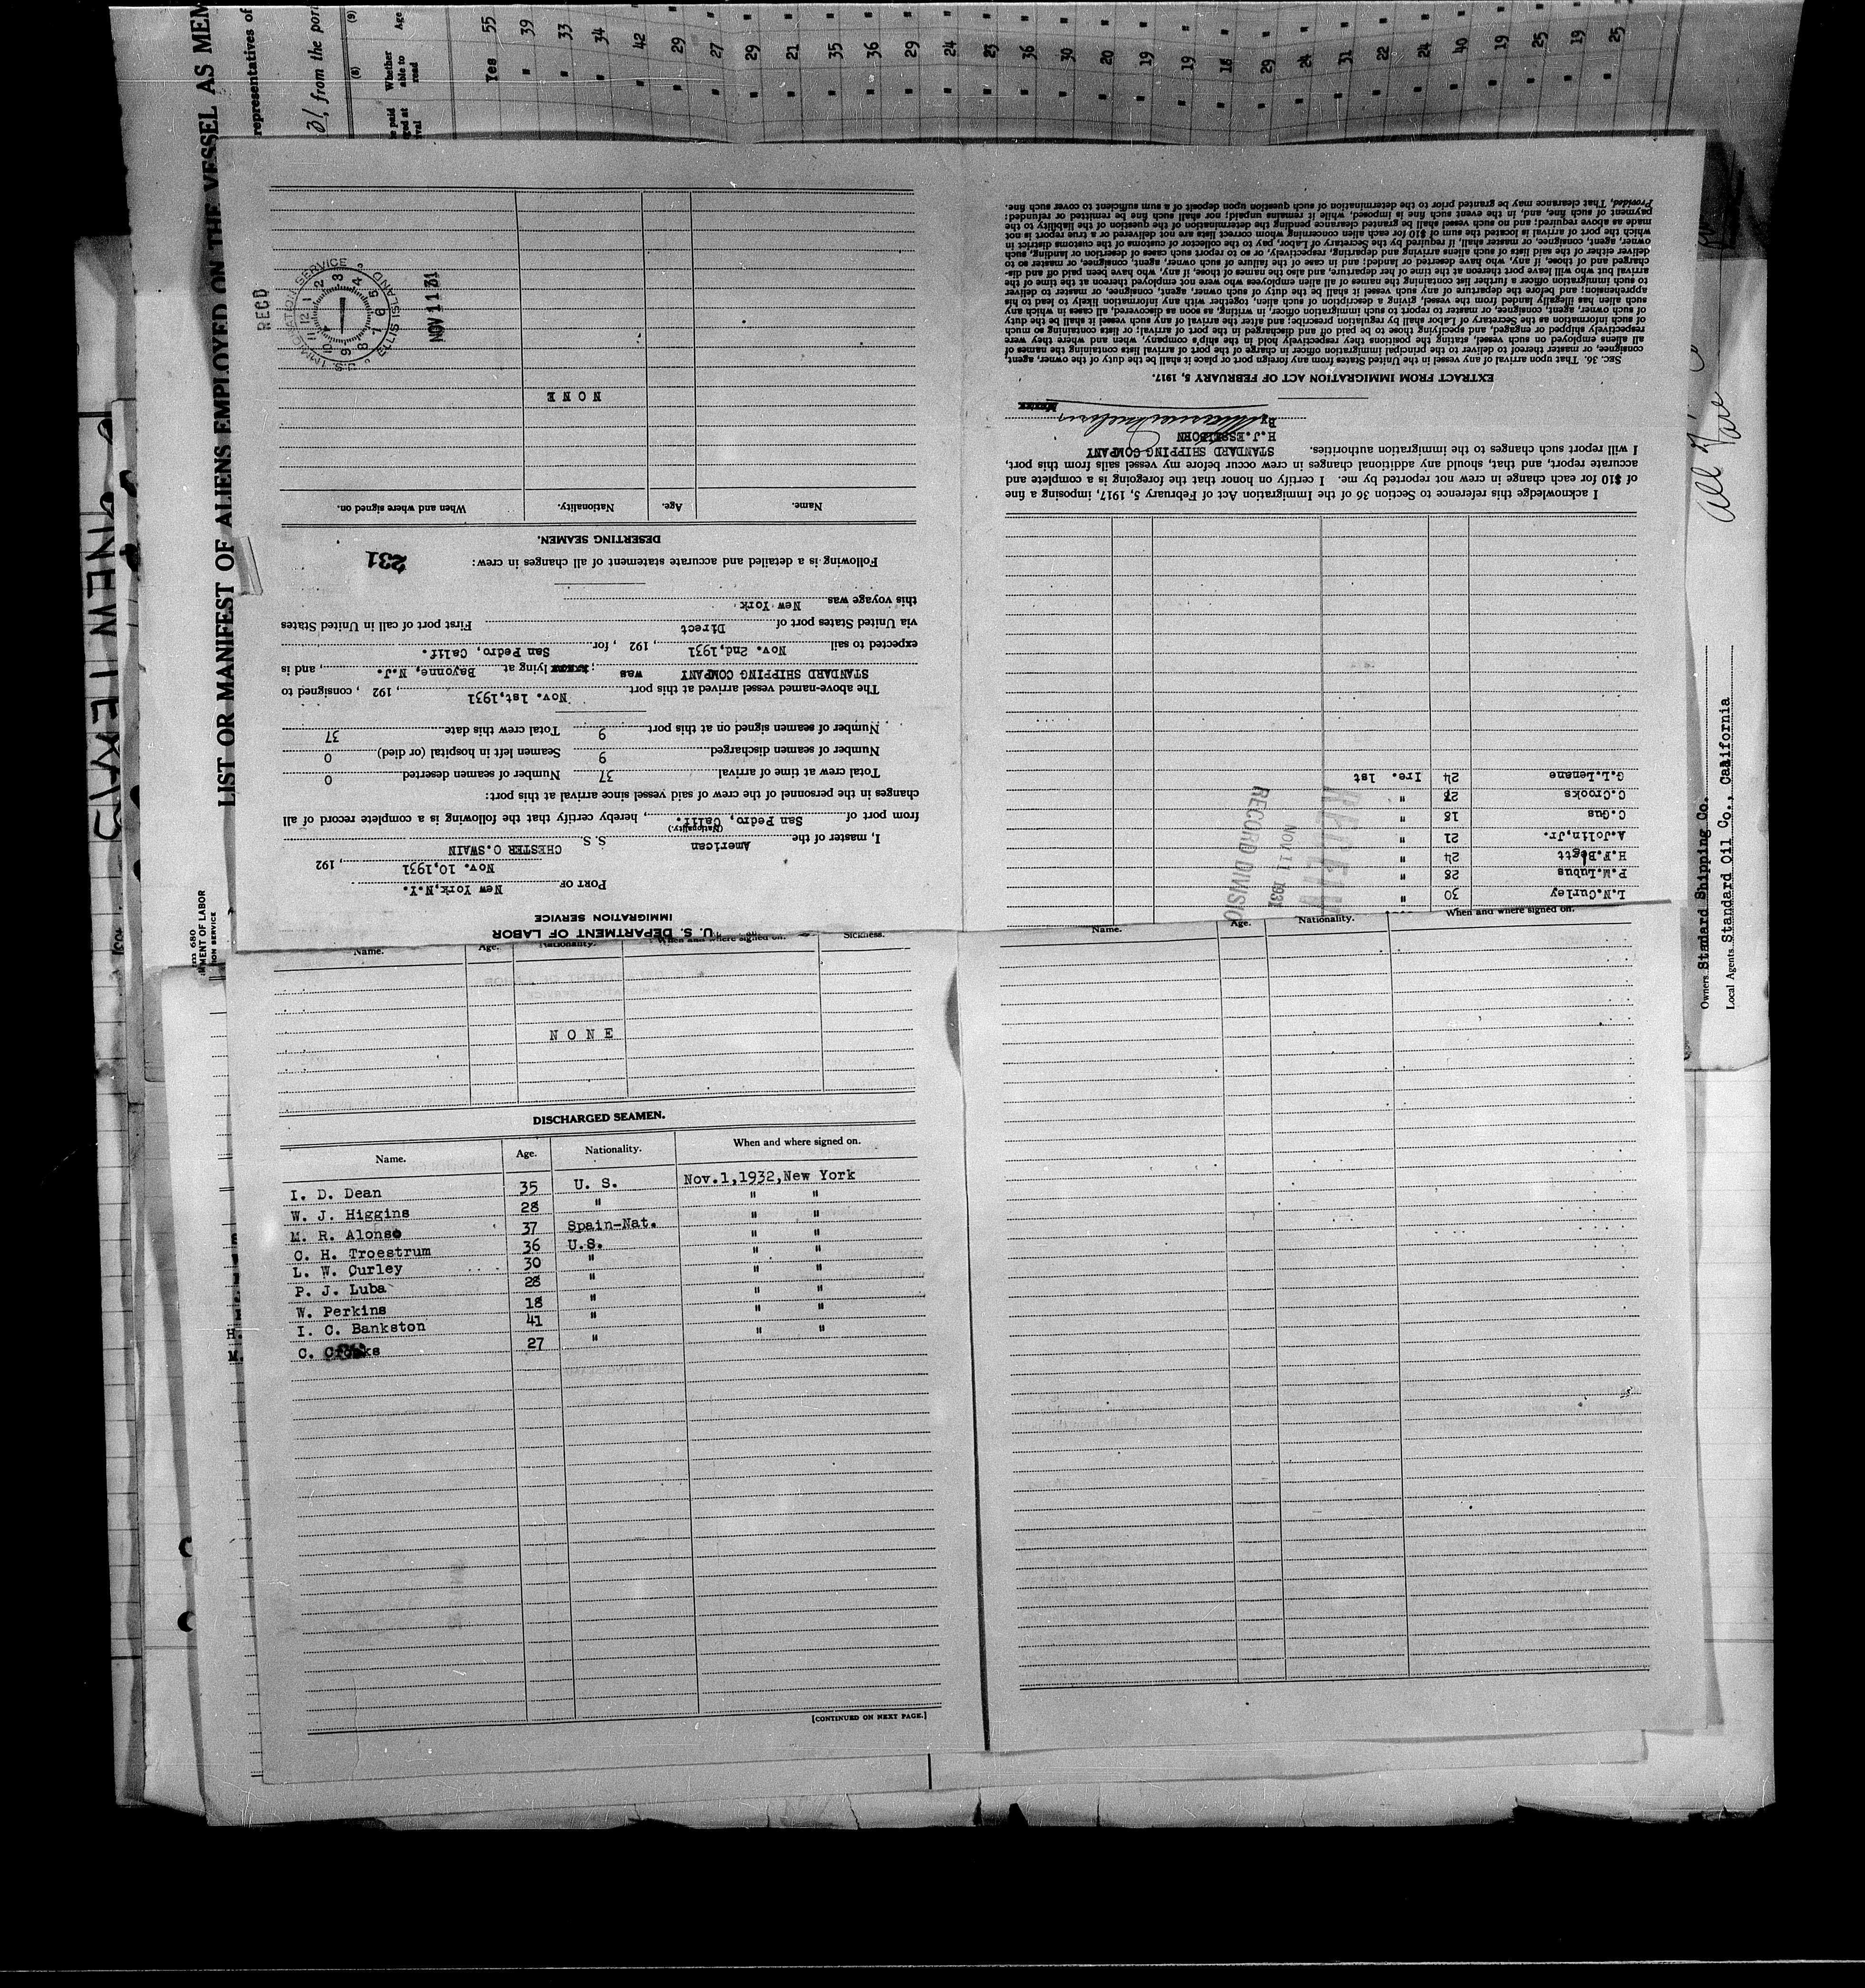 LIST OR MANIFEST OF ALIENS EMPLOYED ON THE VESSEL AS MEM
representatives of
31, from the port
(8)
(9)
Whether able to read
Age
Yes 55
" 39
" 33
" 34
" 42
" 29
" 27
" 29
" 21
" 35
" 36
" 29
" 24
" 23
" 36
" 30
" 20
" 19
" 19
" 18
" 29
" 24
" 31
" 22
" 24
" 40
" 19
" 25
" 19
" 25
U. S. DEPARTMENT OF LABOR
IMMIGRATION SERVICE
PORT OF New York,N.Y.
Nov. 10,1931, 192
I, master of the American S. S. CHESTER O.SWAIN
(Nationality.)
from port of San Pedro, Calif., hereby certify that the following is a complete record of all
changes in the personnel of the crew of said vessel since arrival at this port:
Total crew at time of arrival 37 Number of seamen deserted 0
Number of seamen discharged 9 Seamen left in hospital (or died) 0
Number of seamen signed on at this port 9 Total crew this date 37
The above-named vessel arrived at this port Nov. 1st,1931, 192 , consigned to
STANDARD SHIPPING COMPANY was ; lying at Bayonne, N.J., and is
expected to sail Nov. 2nd,1931, 192 , for San Pedro, Calif.
via United States port of Direct First port of call in United States
this voyage was New York
Following is a detailed and accurate statement of all changes in crew:
231
DESERTING SEAMEN.
Name. Age. Nationality. When and where signed on.
NONE
REC'D
U.S. IMMIGRATION SERVICE ELLIS ISLAND
NOV 11 31
L.N.Curley 30 "
P.M.Lubus 28 "
H.F.Bigtt 24 "
A.Jolin,Jr. 21 "
C.Gus 18 "
C.Crooks "
G.L.Lenane 24 Ire. 1st
RECORD DIVISIO
NOV 11 1931
I acknowledge this reference to Section 36 of the Immigration Act of February 5, 1917, imposing a fine
of $10 for each change in crew not reported by me. I certify on honor that the foregoing is a complete and
accurate report, and that, should any additional changes in crew occur before my vessel sails from this port,
I will report such changes to the immigration authorities.
STANDARD SHIPPING COMPANY
H.J.ESSELBORN
By
Master
EXTRACT FROM IMMIGRATION ACT OF FEBRUARY 5, 1917.
SEC. 36. That upon arrival of any vessel in the United States from any foreign port or place it shall be the duty of the owner, agent,
consignee, or master thereof to deliver to the principal immigration officer in charge of the port of arrival lists containing the names of
all aliens employed on such vessel, stating the positions they respectively hold in the ship's company, when and where they were
respectively shipped or engaged, and specifying those to be paid off and discharged in the port of arrival; or lists containing so much
of such information as the Secretary of Labor shall by regulation prescribe; and after the arrival of any such vessel it shall be the duty
of such owner, agent, consignee, or master to report to such immigration officer, in writing, as soon as discovered, all cases in which any
such alien has illegally landed from the vessel, giving a description of such alien, together with any information likely to lead to his
apprehension; and before the departure of any such vessel it shall be the duty of such owner, agent, consignee, or master to deliver
to such immigration officer a further list containing the names of all alien employees who were not employed thereon at the time of the
arrival but who will leave port thereon at the time of her departure, and also the names of those, if any, who have been paid off and dis-
charged and of those, if any, who have deserted or landed; and in case of the failure of such owner, agent, consignee, or master so to
deliver either of the said lists of such aliens arriving and departing, respectively, or so to report such cases of desertion or landing, such
owner, agent, consignee, or master shall, if required by the Secretary of Labor, pay to the collector of customs of the customs district in
which the port of arrival is located the sum of $10 for each alien concerning whom correct lists are not delivered or a true report is not
made as above required; and no such vessel shall be granted clearance pending the determination of the question of the liability to the
payment of such fine, and, in the event such fine is imposed, while it remains unpaid; nor shall such fine be remitted or refunded:
Provided, That clearance may be granted prior to the determination of such question upon deposit of a sum sufficient to cover such fine.
Name. Age. Nationality. When and where signed on. Sickness.
NONE
DISCHARGED SEAMEN.
Name. Age. Nationality. When and where signed on.
I. D. Dean 35 U. S. Nov.1,1932,New York
W. J. Higgins 28 " " "
M. R. Alonso 37 Spain-Nat. " "
C. H. Troestrum 36 U.S. " "
L. W. Curley 30 " " "
P. J. Luba 28 " " "
W. Perkins 18 " " "
I. C. Bankston 41 " " "
C. Crooks 27 " " "
[CONTINUED ON NEXT PAGE.]
Name. Age. Nationality. When and where signed on.
Owners Standard Shipping Co.
Local Agents Standard Oil Co., California
680
MENT OF LABOR
ION SERVICE
H.
M.